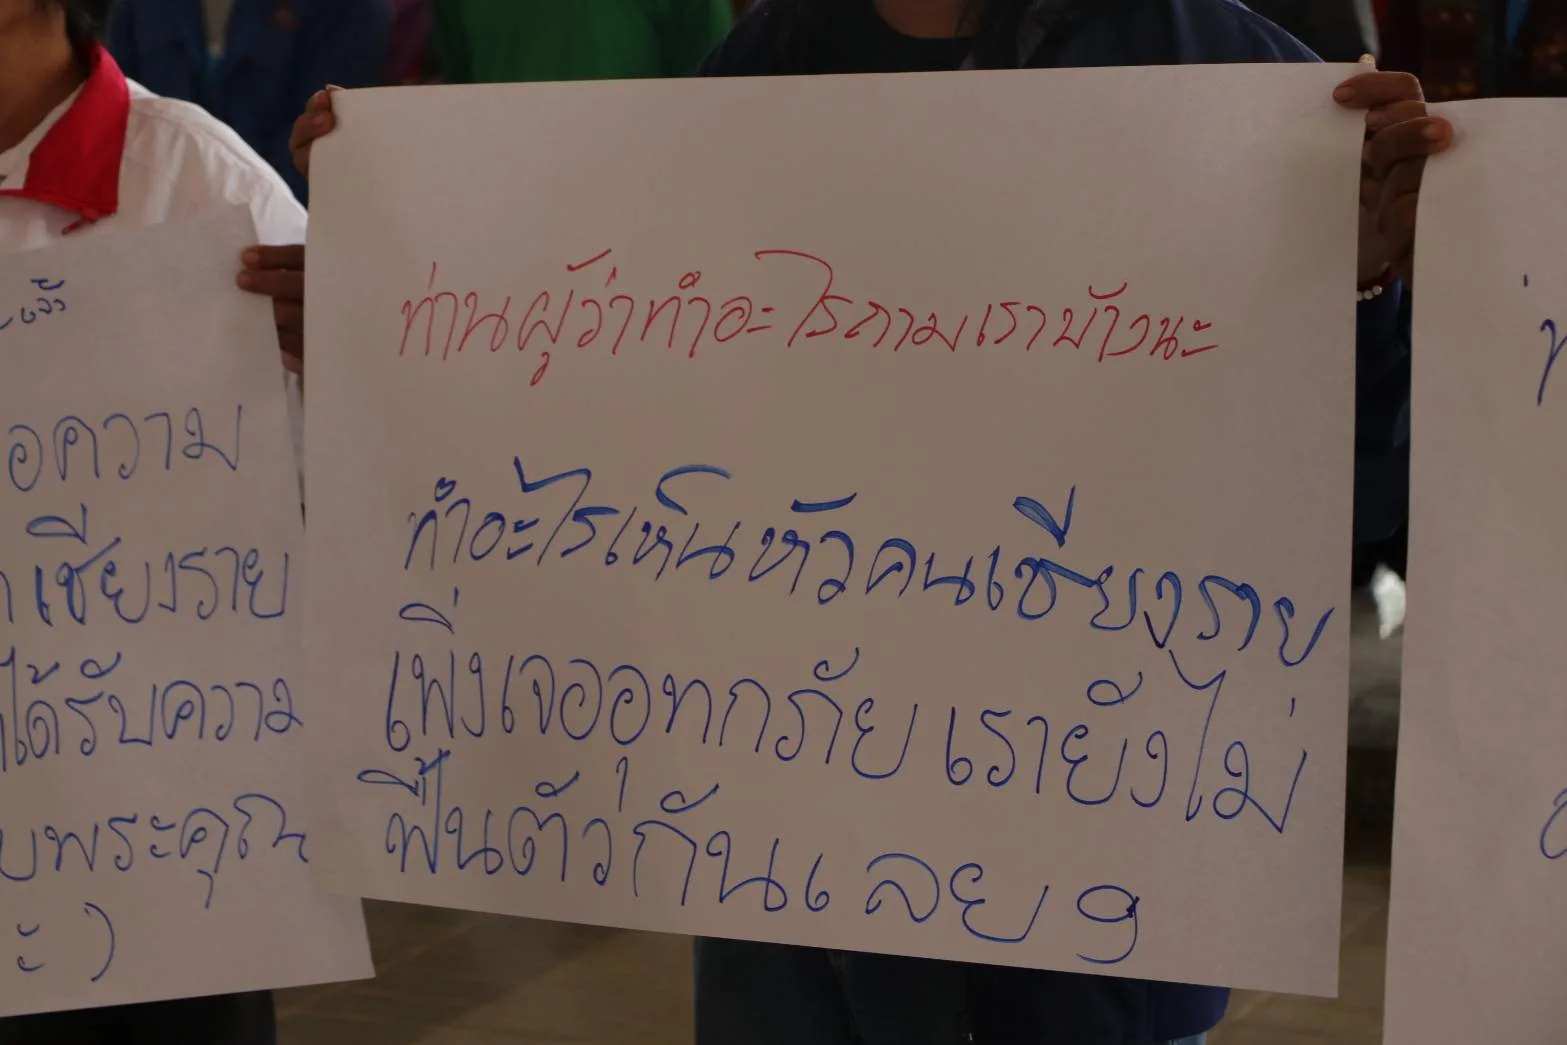 ท่านผู้ว่าทำอะไรถามเราบ้างนะ
ทำอะไรเห็นหัวคนเชียงราย
เพิ่งเจออุทกภัย เรายังไม่
ฟื้นตัวกันเลย ๆ
อความ
เชียงราย
ได้รับความ
บพระคุณ
ะ)